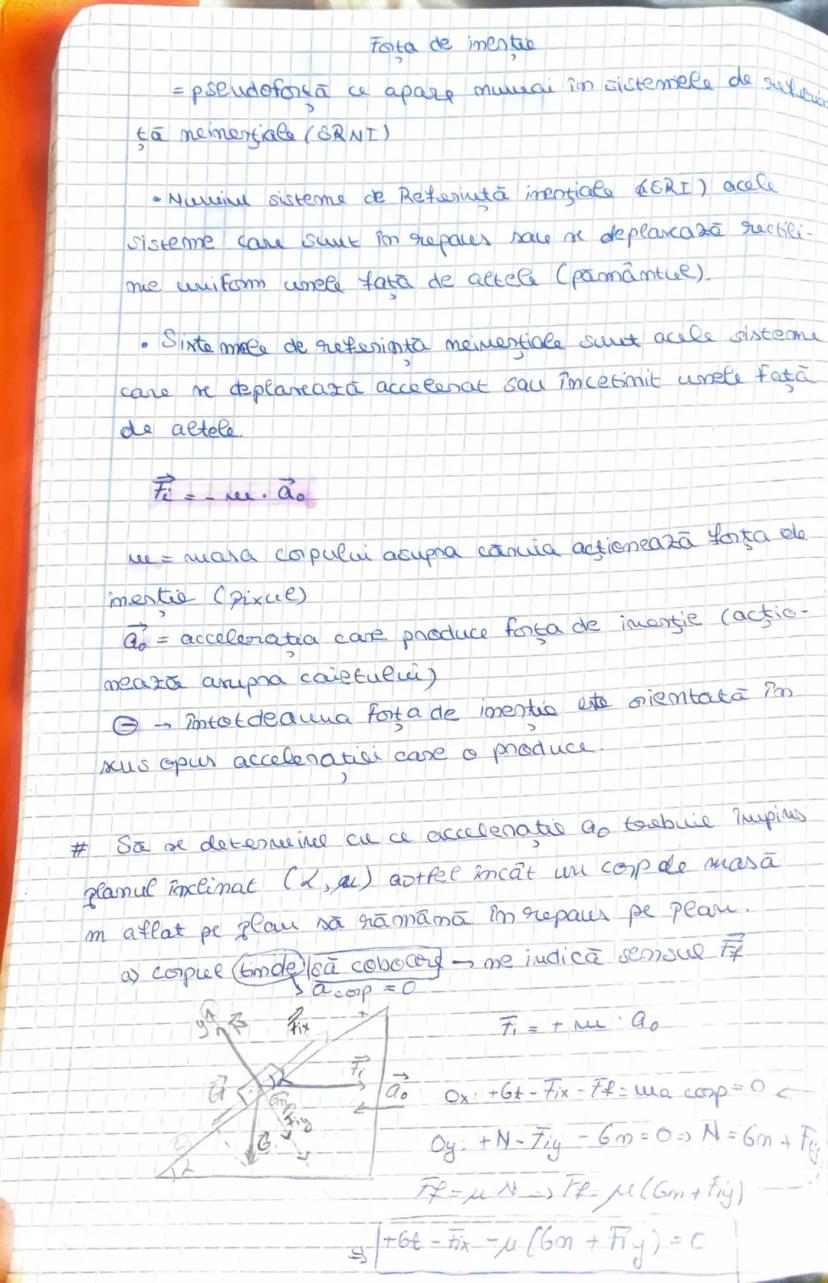 Forța de inerție
= pseudoforță ce apare numai în sistemele de referin
ță neinerțiale (SRNI)
• Numim sisteme de Referință inerțiale (SRI) acele
sisteme care sunt în repaus sau se deplarează rectili-
niu uniform unele față de altele (pământul).
• Sistemele de referință neinerțiale sunt acele sisteme
care se deplarează accelerat sau încetinit unele față
de altele.
F⃗i = - m · a⃗o
m = masa corpului asupra căruia acționează forța de
inerție (pixul)
a⃗o = accelerația care produce forța de inerție (acțio-
nează asupra caietului)
⊖ → întotdeauna forța de inerție este orientată în
sens opus accelerației care o produce.
# Să se determine cu ce accelerație ao trebuie împins
planul înclinat (α, μ) astfel încât un corp de masă
m aflat pe plan să rămână în repaus pe plan.
a) corpul tinde să coboare → ne indică sensul F⃗f
a⃗ corp = 0
y N⃗ F⃗ix
Fi = + m · ao
F⃗i a⃗o
α
G⃗t
Ox: +Gt - Fix - Ff = ma corp = 0
Gn Fiy
G⃗
Oy: +N - Fiy - Gn = 0 ⇒ N = Gn + Fiy
α
Ff = μ N ⇒ Ff = μ (Gn + Fiy)
⇒ +Gt - Fix - μ (Gn + Fiy) = 0